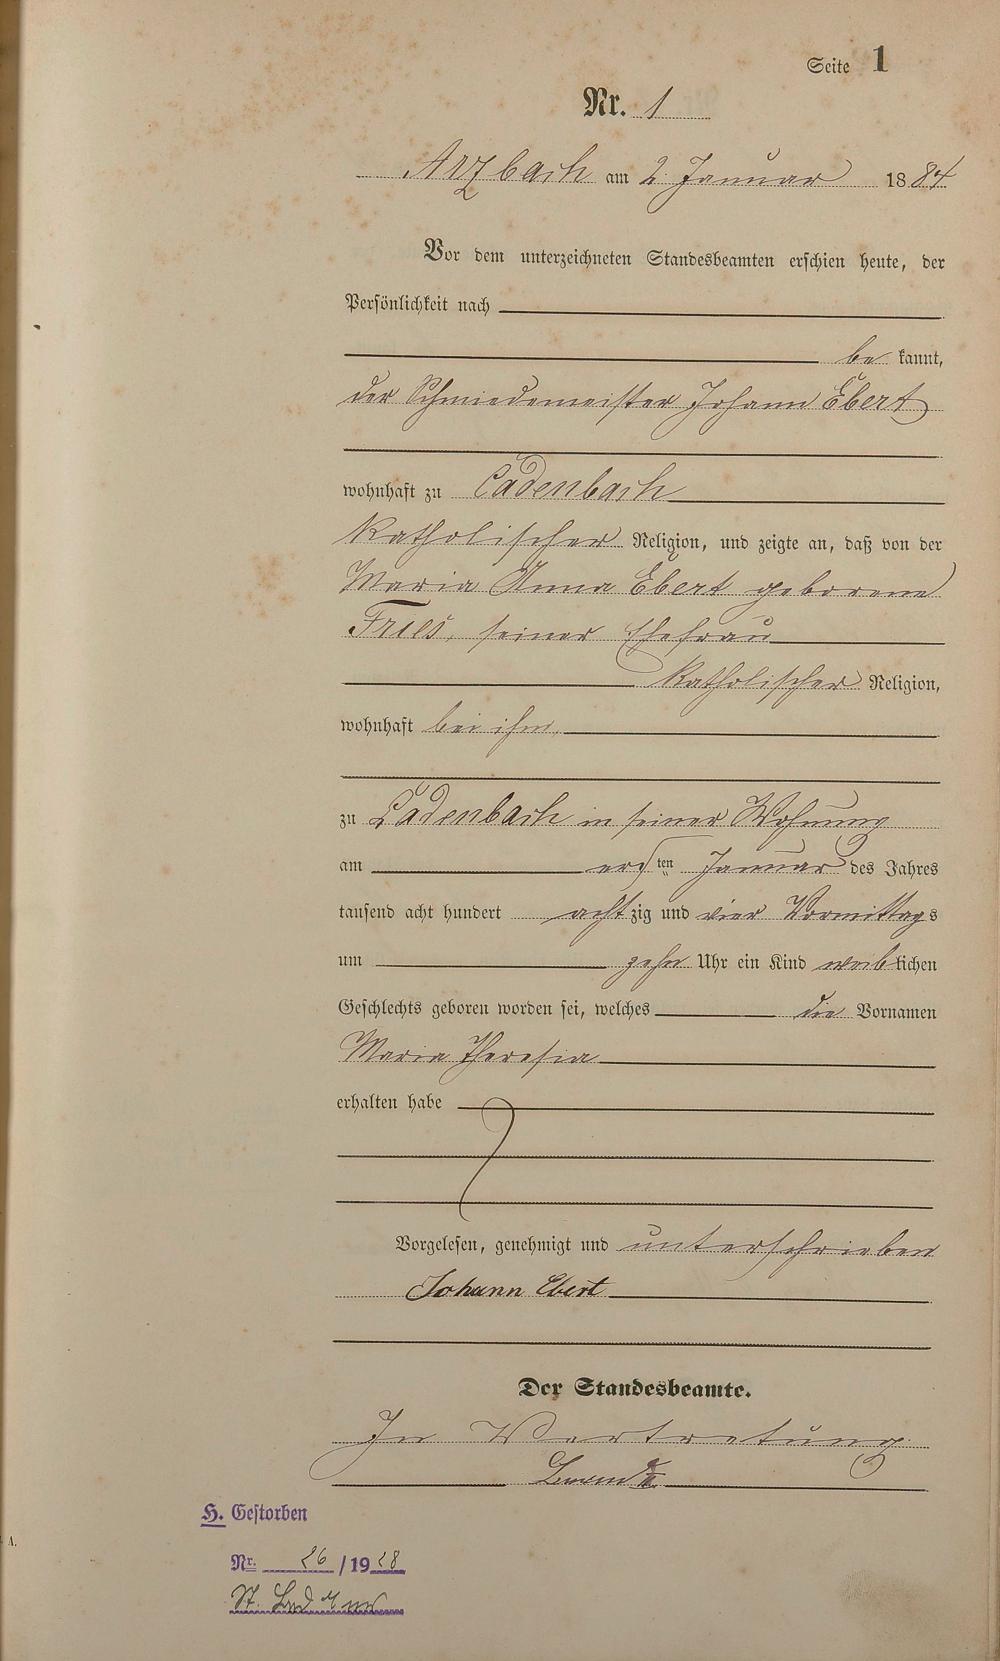 Seite 1
Nr. 1
Arzbach am 2 Januar 1884
Vor dem unterzeichneten Standesbeamten erschien heute, der
Persönlichkeit nach
be kannt,
der Schmiedemeister Johann Ebert
wohnhaft zu Cadenbach
katholischer Religion, und zeigte an, daß von der
Maria Anna Ebert geborene
Fries, seiner Ehefrau
katholischer Religion,
wohnhaft bei ihm,
zu Cadenbach in seiner Wohnung
am ersten Januar des Jahres
tausend acht hundert achtzig und vier Vormittags
um zehn Uhr ein Kind weiblichen
Geschlechts geboren worden sei, welches die Vornamen
Maria Theresia
erhalten habe
Vorgelesen, genehmigt und unterschrieben
Johann Ebert
Der Standesbeamte.
In Vertretung
H. Gestorben
Nr. 26/1928
St. Bad Ems